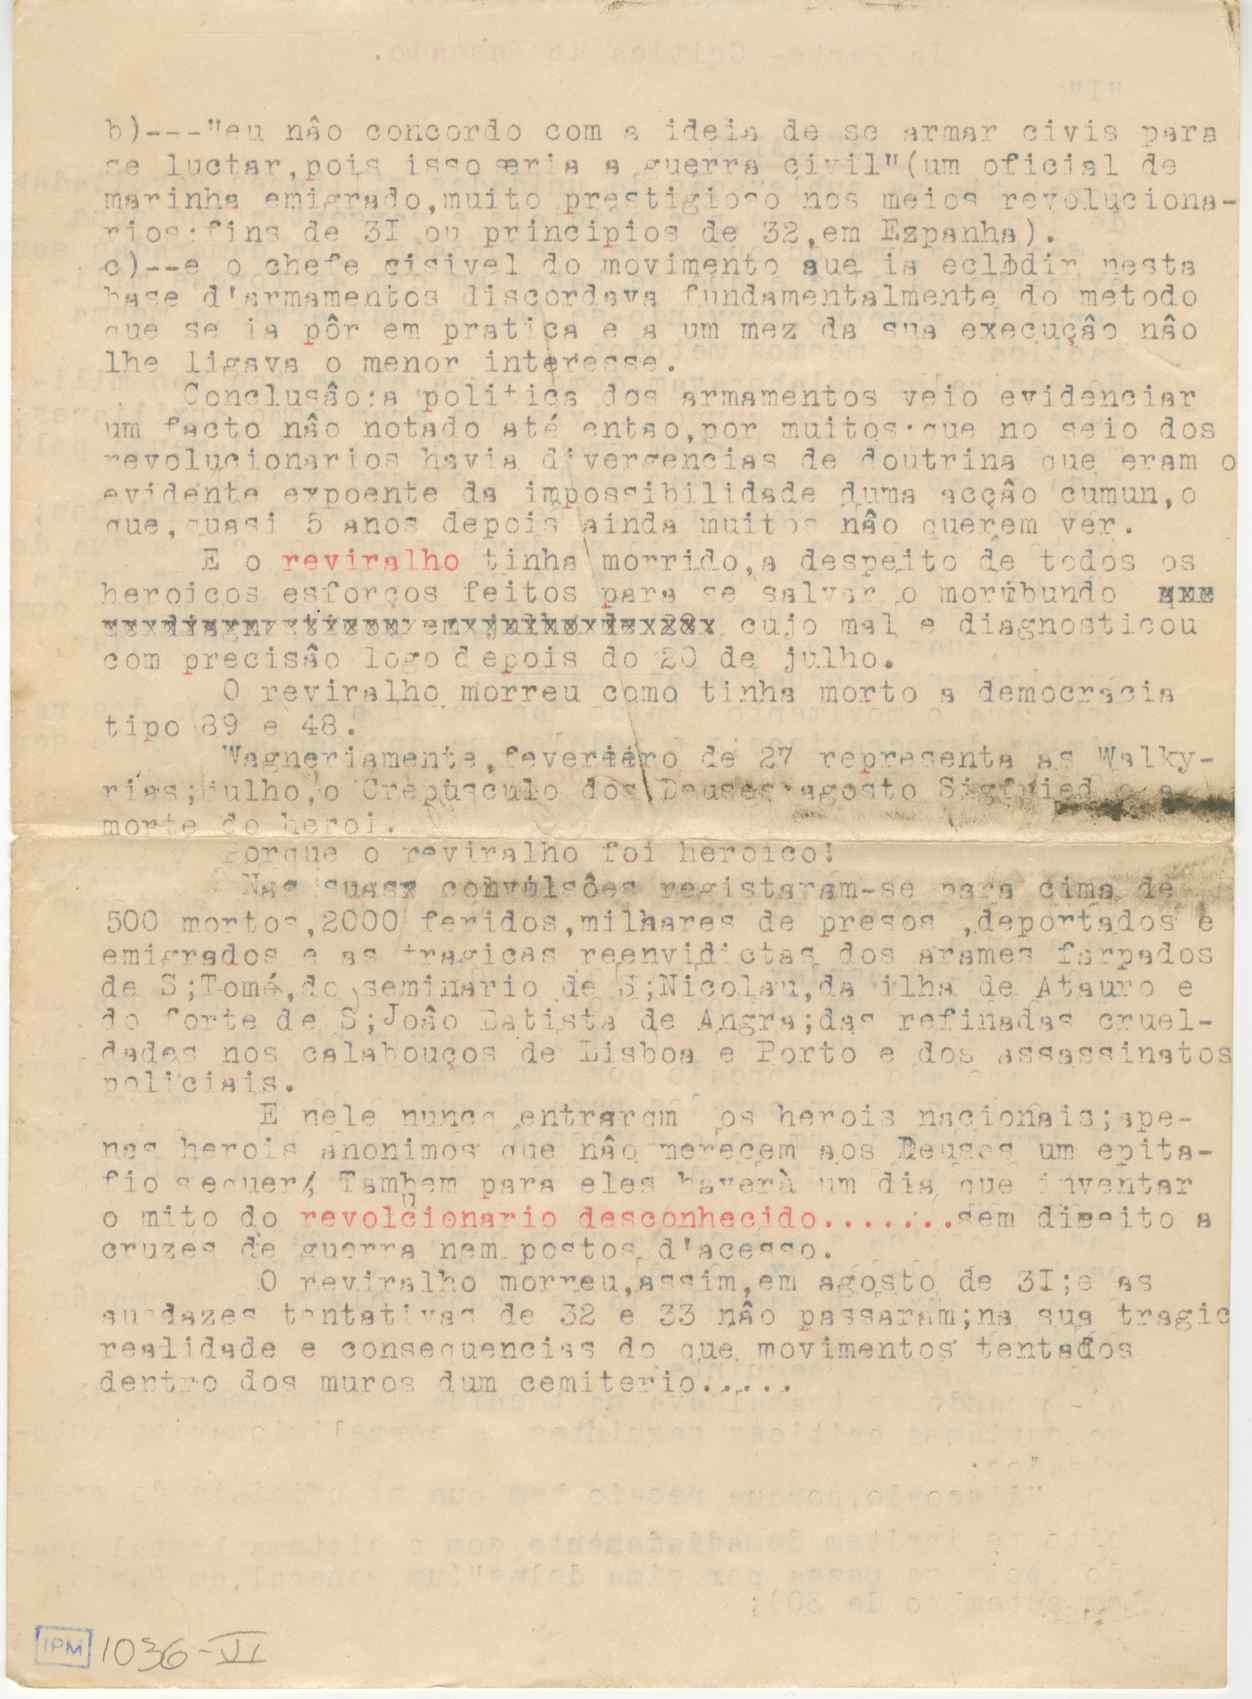 b)---"eu nâo concordo com a ideia de se armar civis para
se luctar,pois isso seria a guerra civil"(um oficial de
marinha emigrado,muito prestigioso nos meios revoluciona-
rios:fins de 3I ou principios de 32,em Ezpanha).
c)--e o chefe cisivel do movimento que ia eclodir nesta
base d'armamentos discordava fundamentalmente do metodo
que se ia pôr em pratica e a um mez da sua execuçâo nâo
lhe ligava o menor interesse.
Conclusâo:a politica dos armamentos veio evidenciar
um facto nâo notado até entao,por muitos:que no seio dos
revolucionarios havia divergencias de doutrina que eram o
evidente expoente da impossibilidade duma acçâo cumun,o
que,quasi 5 anos depois ainda muitos nâo querem ver.
E o reviralho tinha morrido,a despeito de todos os
heroicos esforços feitos para se salvar o moribundo
cujo mal e diagnosticou
com precisâo logo depois do 20 de julho.
O reviralho morreu como tinha morto a democracia
tipo 89 e 48.
Wagneriamente,fevereiro de 27 representa as Walky-
rias;julho,o Crepusculo dos Deuses;agosto Sigfried e a
morte do heroi.
Porque o reviralho foi heroico!
Nas suas convulsôes registaram-se para cima de
500 mortos,2000 feridos,milhares de presos ,deportados e
emigrados e as tragicas reenvidictas dos arames farpados
de S;Tomé,do seminario de S;Nicolau,da ilha de Atauro e
do forte de S;Joâo Batista de Angra;das refinadas cruel-
dades nos calabouços de Lisboa e Porto e dos assassinatos
policiais.
E nele nunca entraram os herois nacionais;ape-
nas herois anonimos que nâo merecem aos Deuses um epita-
fio sequer! Tambem para eles haverà um dia que inventar
o mito do revolucionario desconhecido.......sem direito a
cruzes de guerra nem postos d'acesso.
O reviralho morreu,assim,em agosto de 3I;e as
audazes tentativas de 32 e 33 nâo passaram;na sua tragic
realidade e consequencias do que movimentos tentados
dentro dos muros dum cemiterio.....
IPM 1036-VI